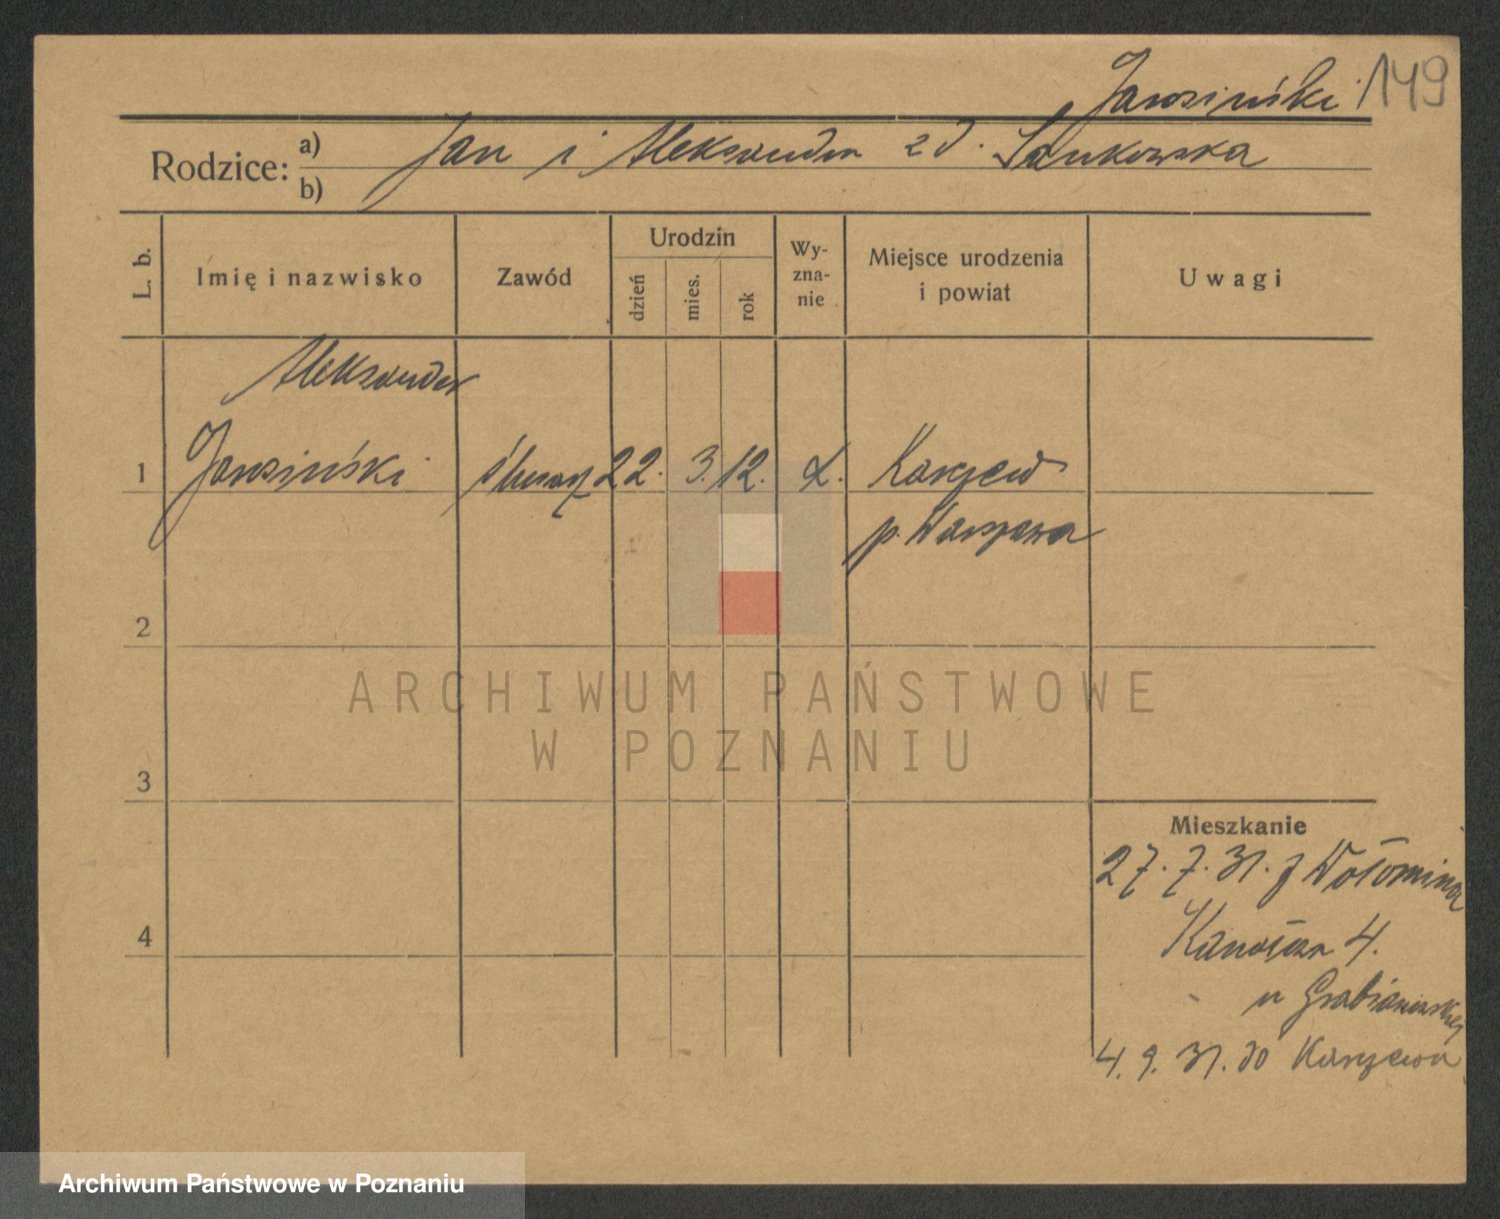 Jarosiński 149
Rodzice: a) Jan i Aleksandra z d. Sankowska
b)
L. b.
Imię i nazwisko
Zawód
Urodzin
dzień
mies.
rok
Wy-
zna-
nie
Miejsce urodzenia
i powiat
Uwagi
Aleksander
1 Jarosiński ślusarz 22. 3. 12. k. Karczew
p. Warszawa
2
ARCHIWUM PAŃSTWOWE
W POZNANIU
3
Mieszkanie
27. 7. 31. z Wołomina
4
4.
u Grabianowskiej
4. 9. 31. do Karczewa
Archiwum Państwowe w Poznaniu